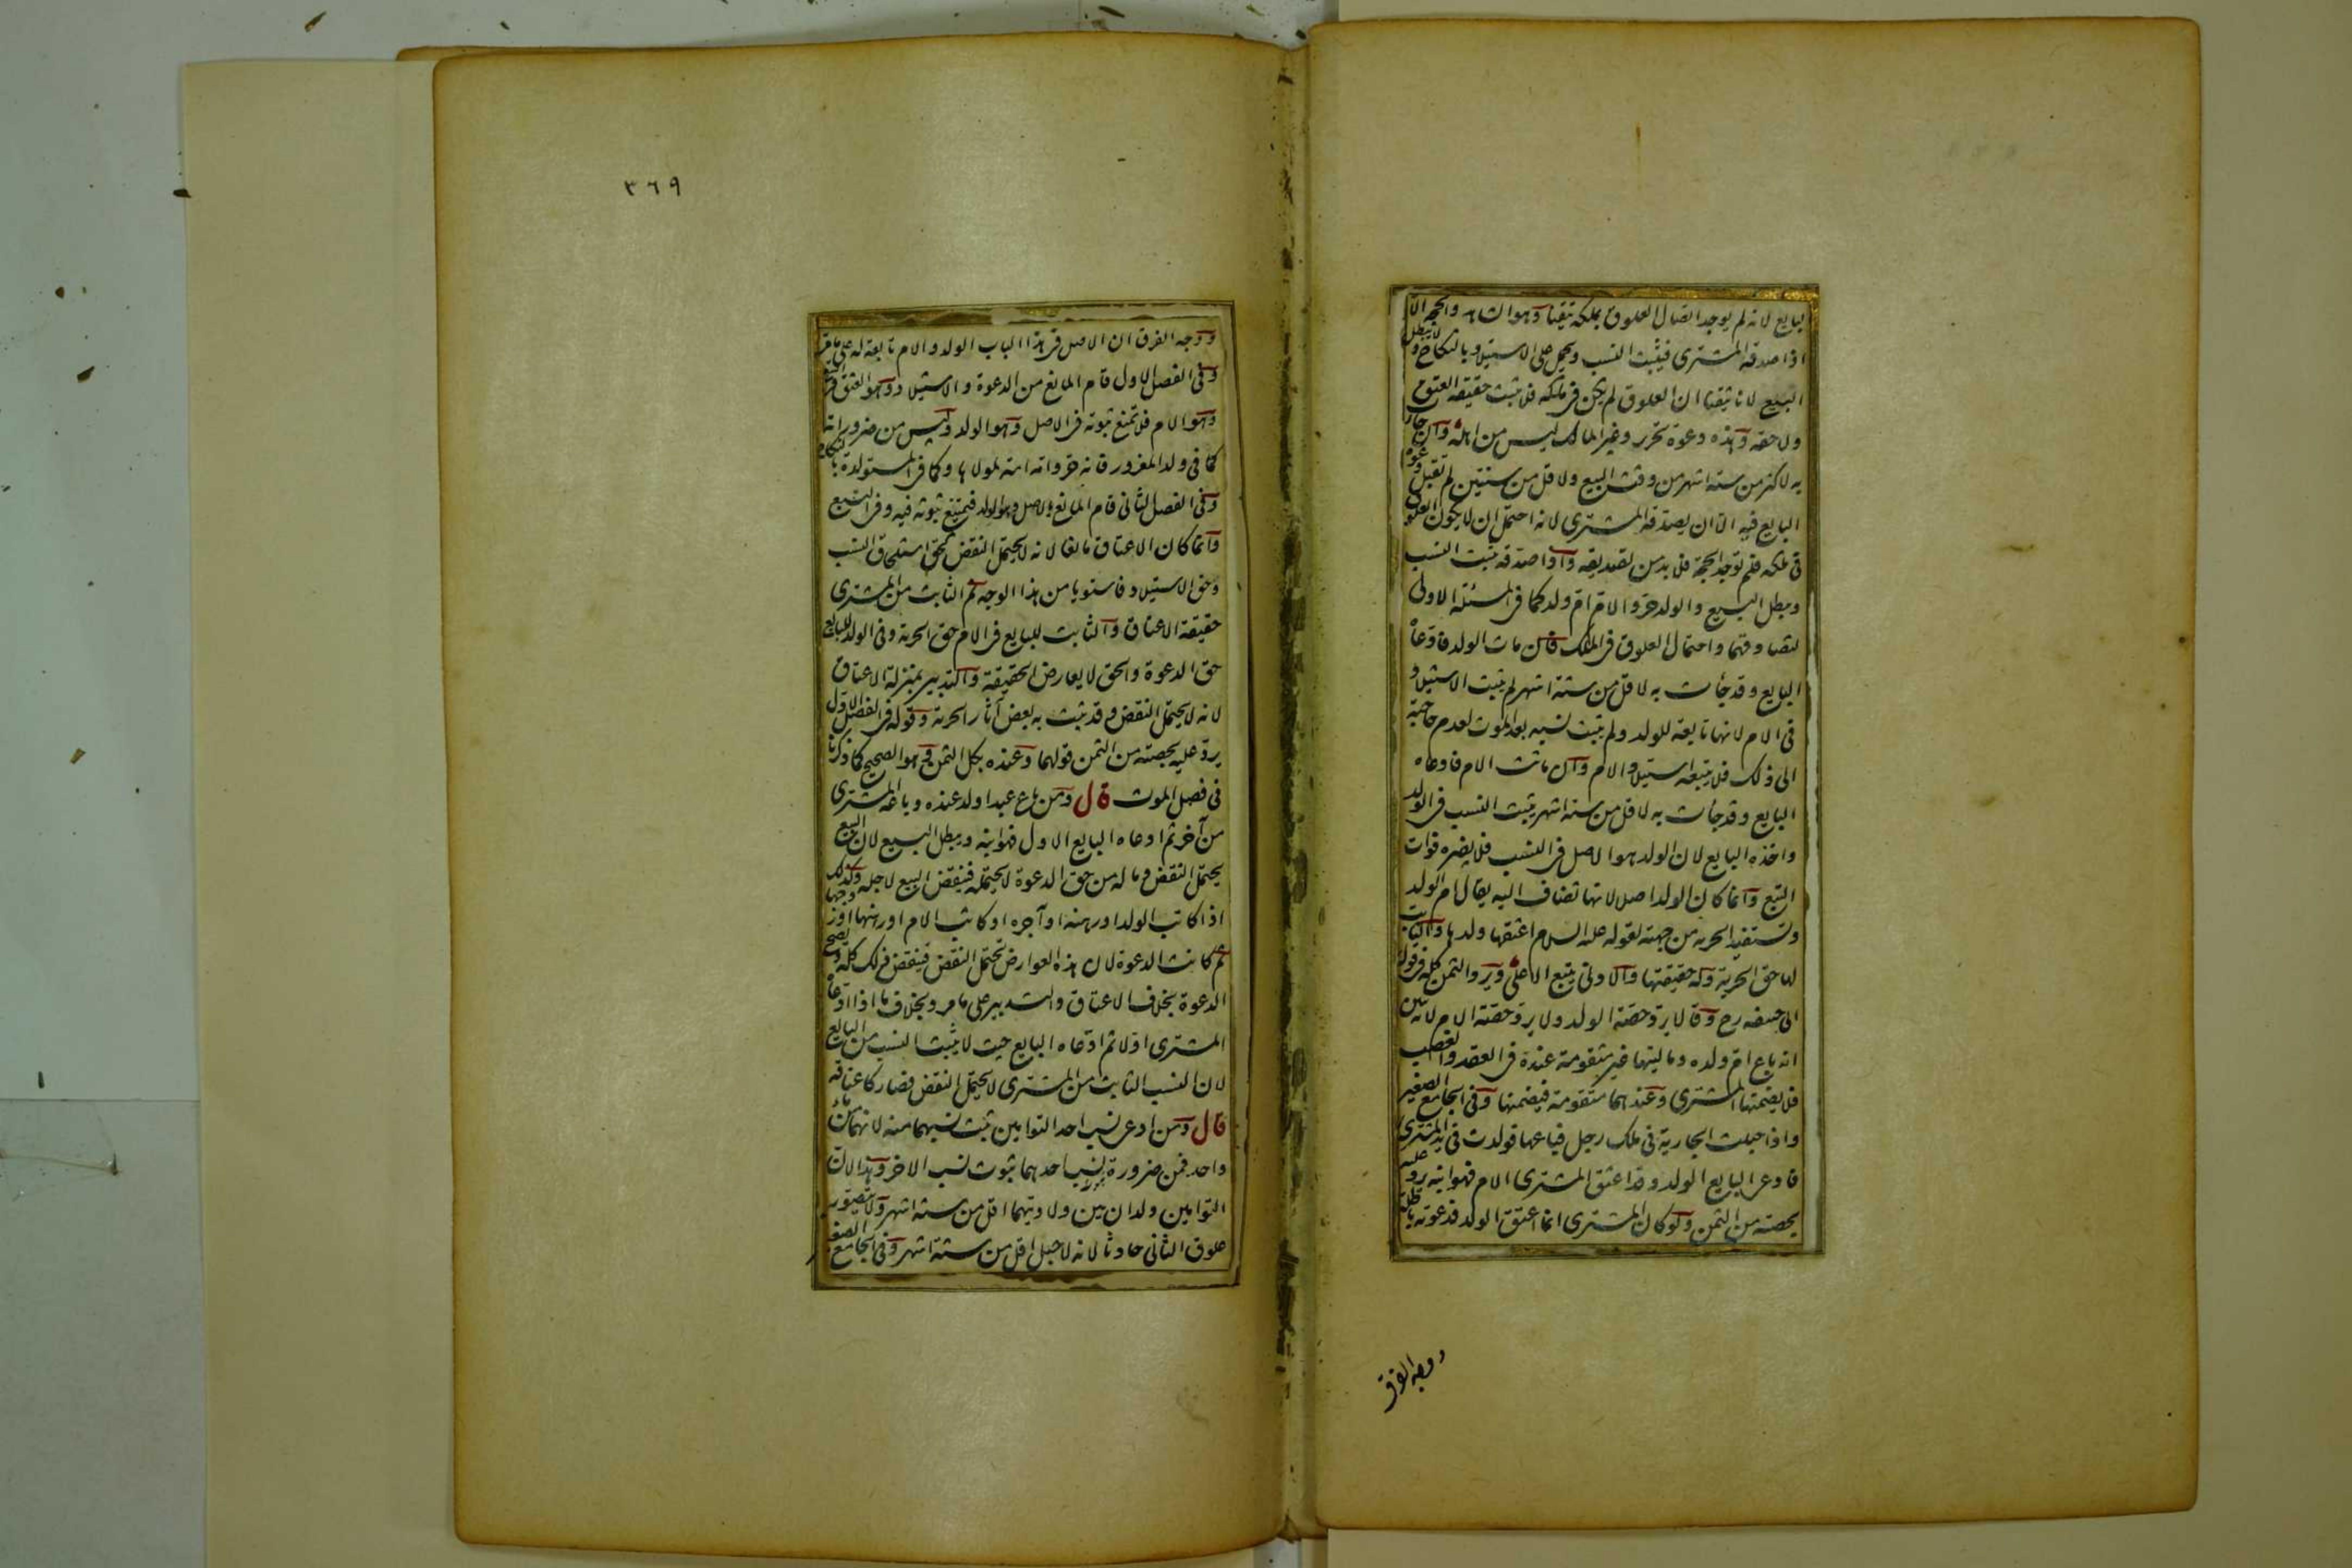 لبايع لانه لم يوجد اتصال العلوق بملكه تيقنا وهو الشاهد والحجة الا
اذا صدقه المشترى فيثبت النسب ويحمل على الاستيلاد بالنكاح ولا يبطل
البيع لانا تيقنا ان العلوق لم يكن فى ملكه فلا يثبت حقيقة العتق
ولا حقه وهذه دعوة تحرير وغير المالك ليس من اهله وان جاءت
به لاكثر من ستة اشهر من وقت البيع ولاقل من سنتين لم تقبل دعوة
البايع فيه الا ان يصدقه المشترى لانه احتمل ان لا يكون العلوق
فى ملكه فلم توجد الحجة فلا بد من تصديقه واذا صدقه يثبت النسب
ويبطل البيع والولد حر والام ام ولد كما فى المسئلة الاولى
لتصادقهما واحتمال العلوق فى الملك فان مات الولد فادعاه
البايع وقد جأت به لاقل من ستة اشهر لم يثبت الاستيلاد
فى الام لانها تابعة للولد ولم يثبت نسبه بعد الموت لعدم حاجته
الى ذلك فلا يتبعه استيلاد الام وان ماتت الام فادعاه
البايع وقد جأت به لاقل من ستة اشهر يثبت النسب فى الولد
واخذه البايع لان الولد هو الاصل فى النسب فلا يضره فوات
التبع وانما كان الولد اصلا لانها تضاف اليه يقال ام الولد
وتستفيد الحرية من جهته لقوله عليه السلام اعتقها ولدها والثابت
لها حق الحرية وله حقيقتها والادنى يتبع الاعلى ويرد الثمن كله فى قول
ابى حنيفه رح وقالا يرد حصة الولد ولا يرد حصة الام لانه تبين
انه باع ام ولده وماليتها غير متقومة عنده فى العقد والغصب
فلا يضمنها المشترى وعندهما متقومة فيضمنها وفى الجامع الصغير
واذا حبلت الجارية فى ملك رجل فباعها فولدت فى يد المشترى
فادعى البايع الولد وقد اعتق المشترى الام فهو ابنه يرد عليه
بحصته من الثمن ولو كان المشترى انما اعتق الولد فدعوته باطلة
ووجه الفرق
٣٦٩
ووجه الفرق ان الاصل فى هذا الباب الولد والام تابعة له على ما مر
وفى الفصل الاول قام المانع من الدعوة والاستيلاد وهو العتق فى التبع
وهو الام فلا تمنع ثبوته فى الاصل وهو الولد وليس من ضروراته
كما فى ولد المغرور فانه حر وامه امة لمولاها وكما فى المستولدة بالنكاح
وفى الفصل الثانى قام المانع بالاصل وهو الولد فيمتنع ثبوته فيه وفى التبع
وانما كان الاعتاق مانعا لانه لا يحتمل النقض كحق استلحاق النسب
وحق الاستيلاد فاستويا من هذا الوجه ثم الثابت من المشترى
حقيقة الاعتاق والثابت للبايع فى الام حق الحرية وفى الولد للبايع
حق الدعوة والحق لا يعارض الحقيقة والتدبير بمنزلة الاعتاق
لانه لا يحتمل النقض وقد يثبت به بعض آثار الحرية وقوله فى الفصل الاول
يرد عليه بحصته من الثمن قولهما وعنده بكل الثمن وهو الصحيح كما ذكرنا
فى فصل الموت قال ومن باع عبدا ولد عنده وباعه المشترى
من آخر ثم ادعاه البايع الاول فهو ابنه ويبطل البيع لان البيع
يحتمل النقض وما له من حق الدعوة لا يحتمله فينقض البيع لاجله وكذلك
اذا كاتب الولد او رهنه او آجره او كاتب الام او رهنها او زوجها
ثم كانت الدعوة لان هذه العوارض تحتمل النقض فينقض ذلك كله وتصح
الدعوة بخلاف الاعتاق والتدبير على ما مر وبخلاف ما اذا ادعاه
المشترى اولا ثم ادعاه البايع حيث لا يثبت النسب من البايع
لان النسب الثابت من المشترى لا يحتمل النقض فصار كاعتاقه
قال ومن ادعى نسب احد التوامين ثبت نسبهما منه لانهما من ماء
واحد فمن ضرورة نسب احدهما ثبوت نسب الاخر وهذا لان
التوامين ولدان بين ولادتهما اقل من ستة اشهر ولا يتصور
علوق الثانى حادثا لانه لا حبل اقل من ستة اشهر وفى الجامع الصغير